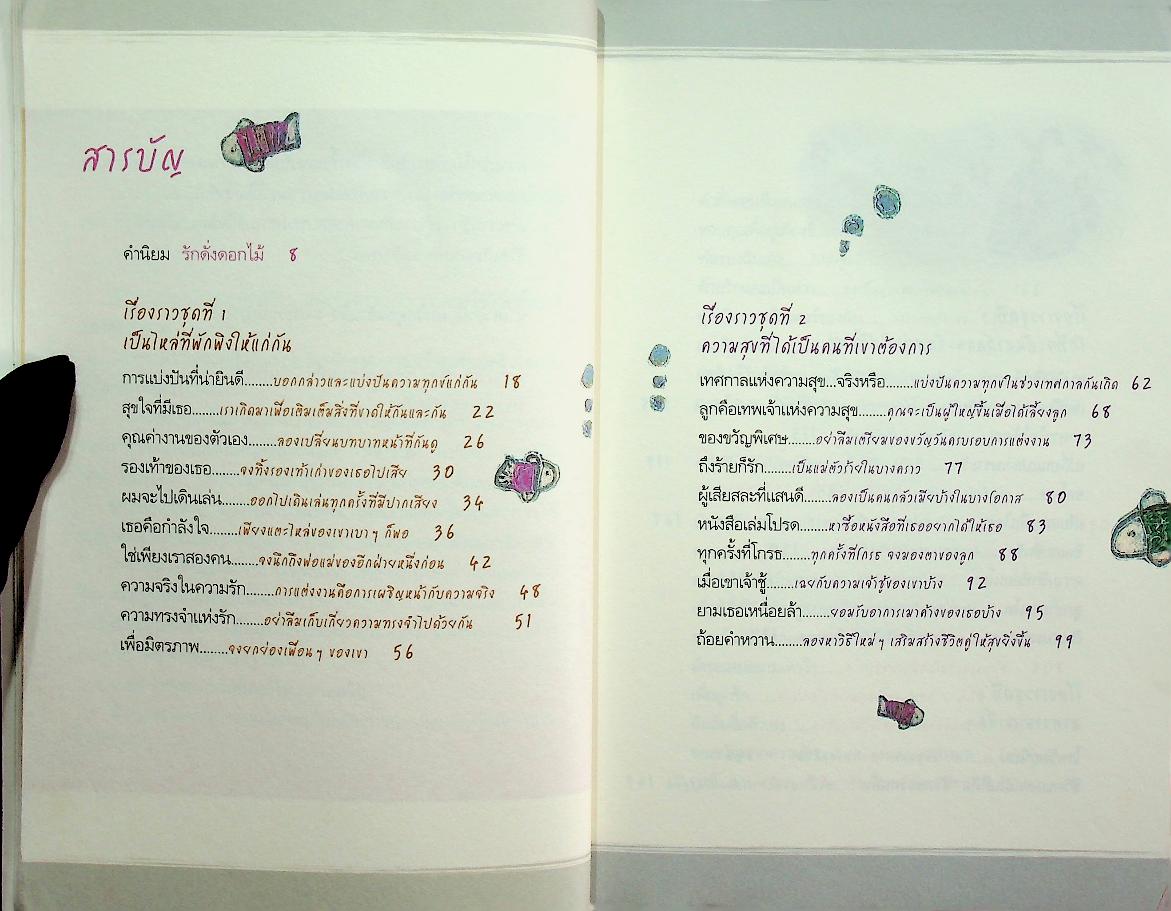 สารบัญ
คำนิยม รักดั่งดอกไม้ 8
เรื่องราวชุดที่ 1
เป็นไหล่ที่พักพิงให้แก่กัน
การแบ่งปันที่น่ายินดี........บอกกล่าวและแบ่งปันความทุกข์แก่กัน 18
สุขใจที่มีเธอ........เราเกิดมาเพื่อเติมเต็มสิ่งที่ขาดให้กันและกัน 22
คุณค่างานของตัวเอง........ลองเปลี่ยนบทบาทหน้าที่กันดู 26
รองเท้าของเธอ........จงทิ้งรองเท้าเก่าของเธอไปเสีย 30
ผมจะไปเดินเล่น........ออกไปเดินเล่นทุกครั้งที่มีปากเสียง 34
เธอคือกำลังใจ........เพียงแตะไหล่ของเขาเบาๆ ก็พอ 36
ใช่เพียงเราสองคน........จงนึกถึงพ่อแม่ของอีกฝ่ายหนึ่งก่อน 42
ความจริงในความรัก........การแต่งงานคือการเผชิญหน้ากับความจริง 48
ความทรงจำแห่งรัก........อย่าลืมเก็บเกี่ยวความทรงจำไปด้วยกัน 51
เพื่อมิตรภาพ........จงยกย่องเพื่อนๆ ของเขา 56
เรื่องราวชุดที่ 2
ความสุขที่ได้เป็นคนที่เขาต้องการ
เทศกาลแห่งความสุข...จริงหรือ........แบ่งปันความทุกข์ในช่วงเทศกาลกันเถิด 62
ลูกคือเทพเจ้าแห่งความสุข........คุณจะเป็นผู้ใหญ่ขึ้นเมื่อได้เลี้ยงลูก 68
ของขวัญพิเศษ........อย่าลืมเตรียมของขวัญวันครบรอบการแต่งงาน 73
ถึงร้ายก็รัก........เป็นแม่ตัวร้ายในบางคราว 77
ผู้เสียสละที่แสนดี........ลองเป็นคนกลัวเมียบ้างในบางโอกาส 80
หนังสือเล่มโปรด........หาซื้อหนังสือที่เธออยากได้ให้เธอ 83
ทุกครั้งที่โกรธ........ทุกครั้งที่โกรธ จงมองตาของลูก 88
เมื่อเขาเจ้าชู้........เฉยกับความเจ้าชู้ของเขาบ้าง 92
ยามเธอเหนื่อยล้า........ยอมรับอาการเมาค้างของเธอบ้าง 95
ถ้อยคำหวาน........ลองหาวิธีใหม่ๆ เสริมสร้างชีวิตคู่ให้สุขยิ่งขึ้น 99